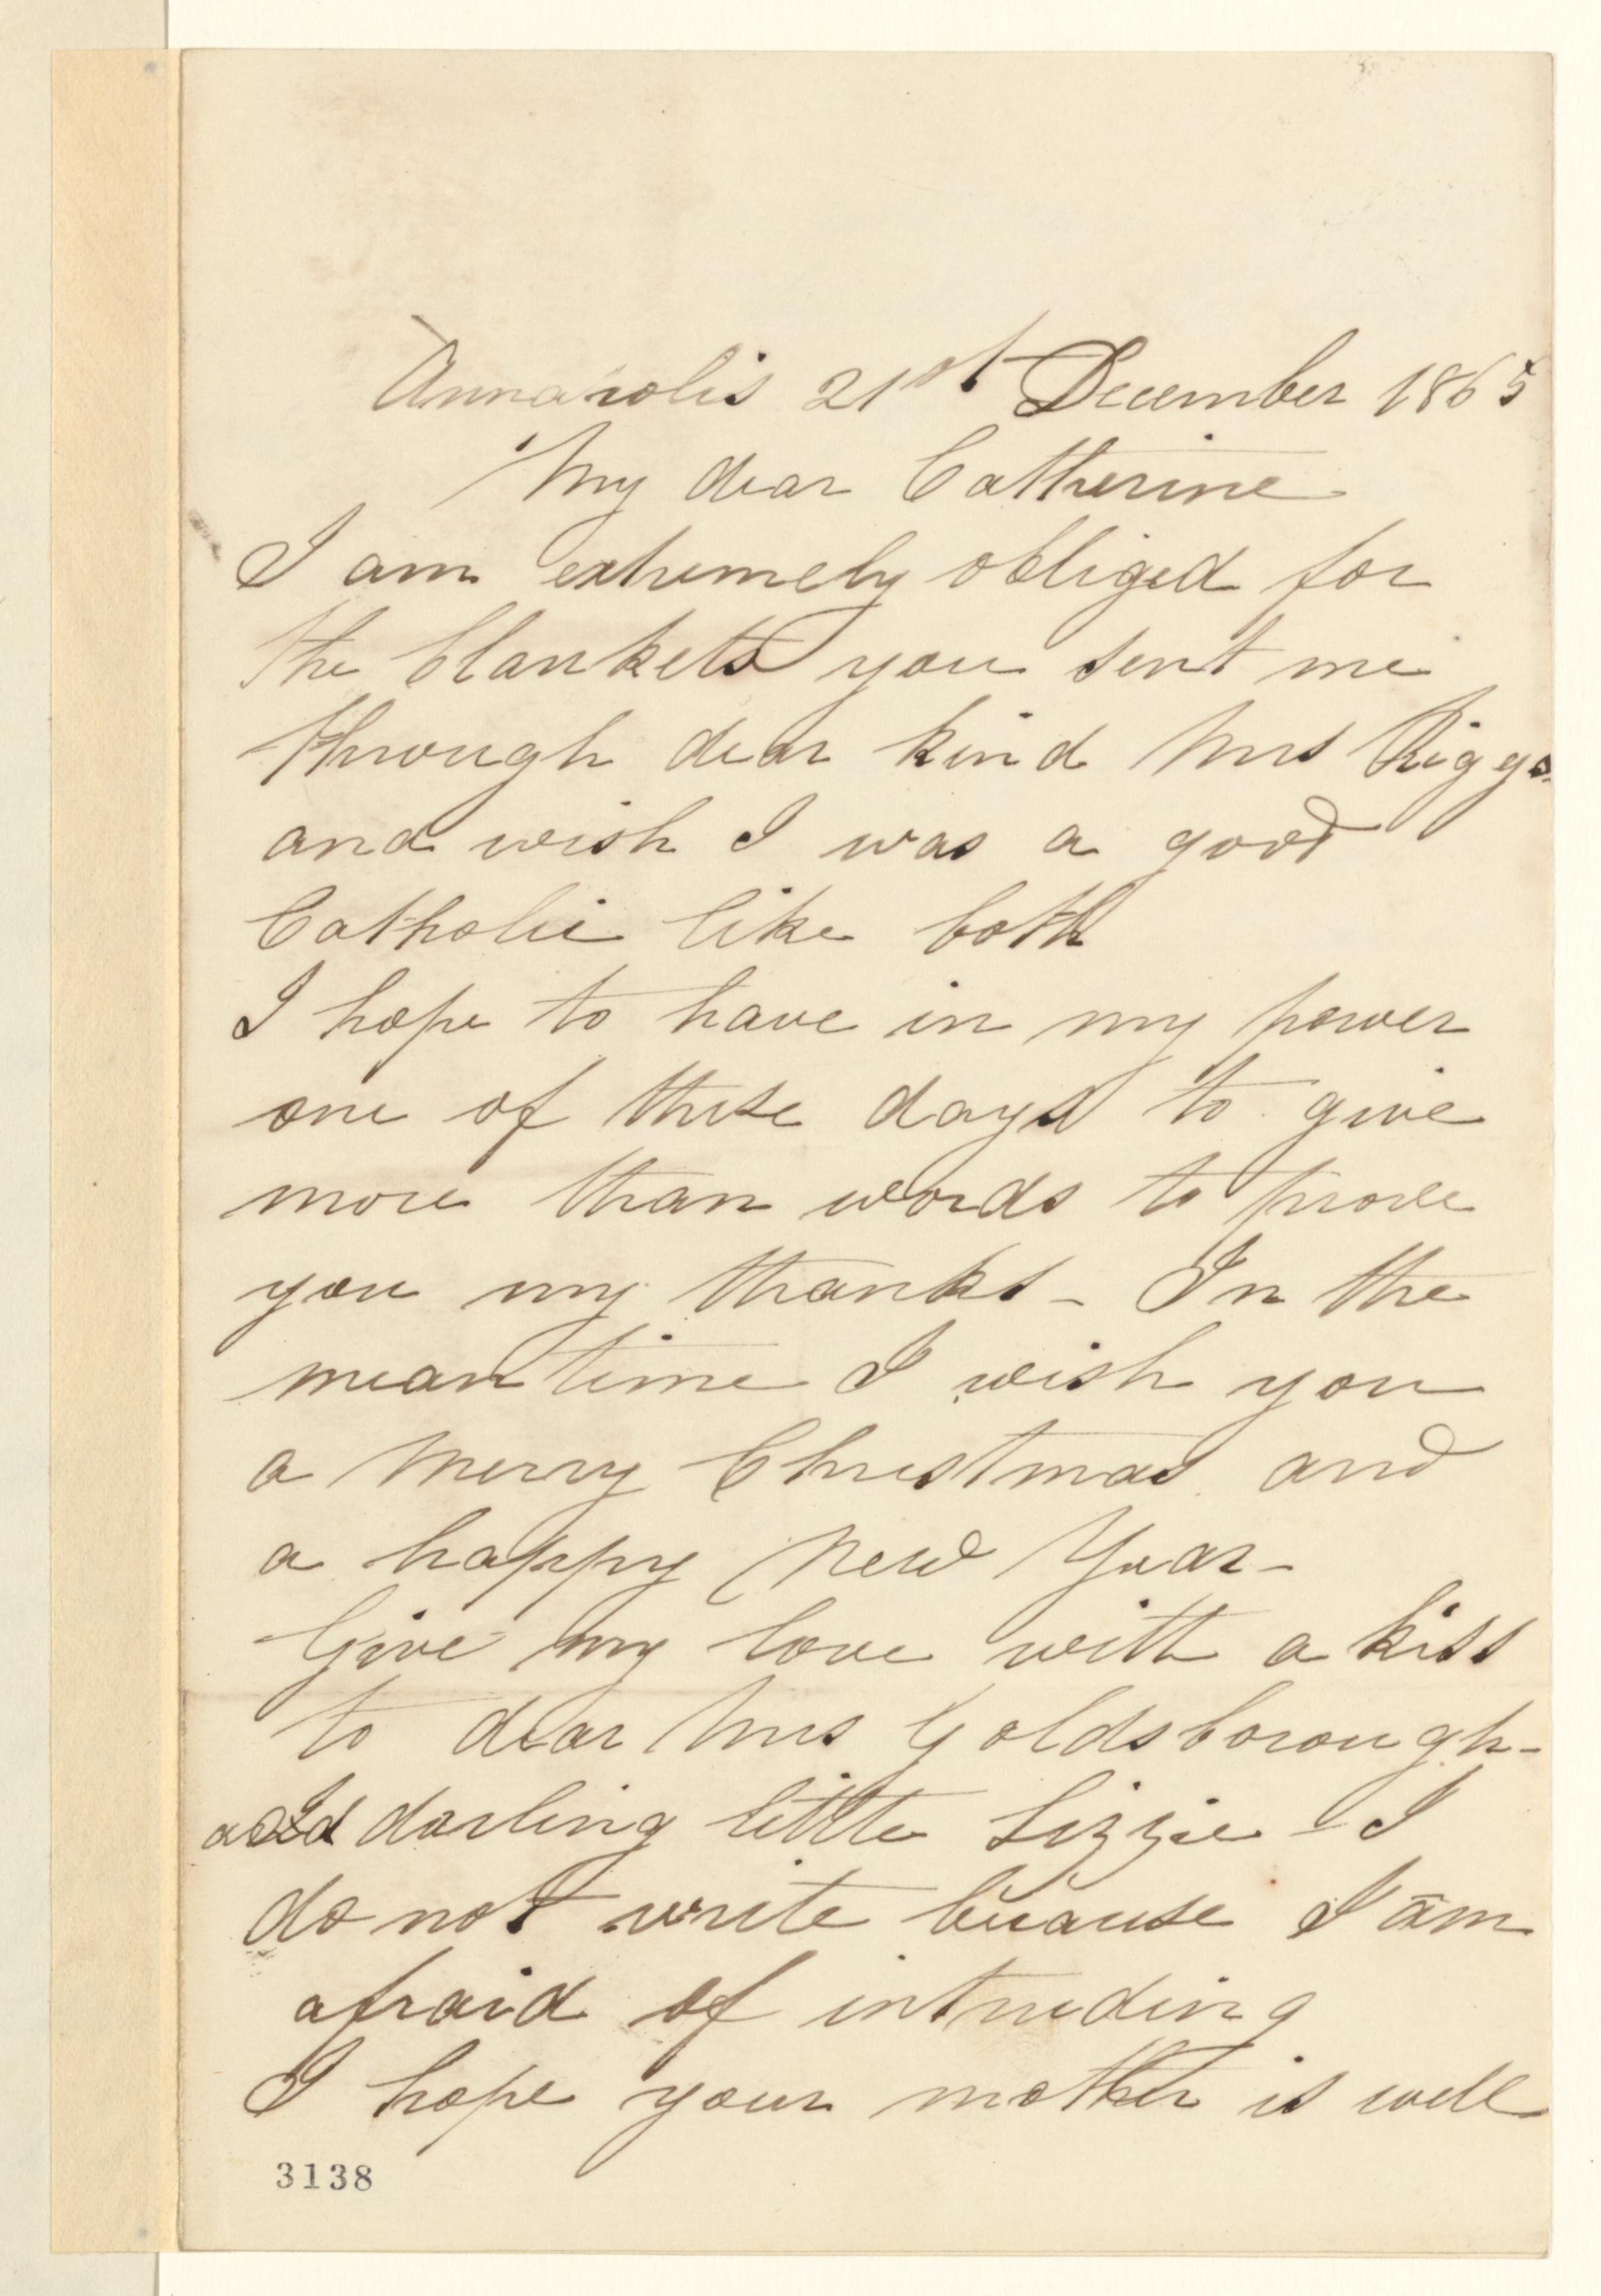 Annapolis 21st December 1865
My dear Catherine
I am extremely obliged for
the blankets you sent me
through dear kind Mrs Riggs
and wish I was a good
Catholic like both
I hope to have in my power
one of these days to give
more than words to prove
you my thanks - In the
mean time I wish you
a Merry Christmas and
a happy New Year -
Give my love with a kiss
to dear Mrs Goldsborough -
and darling little Lizzie - I
do not write because I am
afraid of intruding
I hope your mother is well
3138